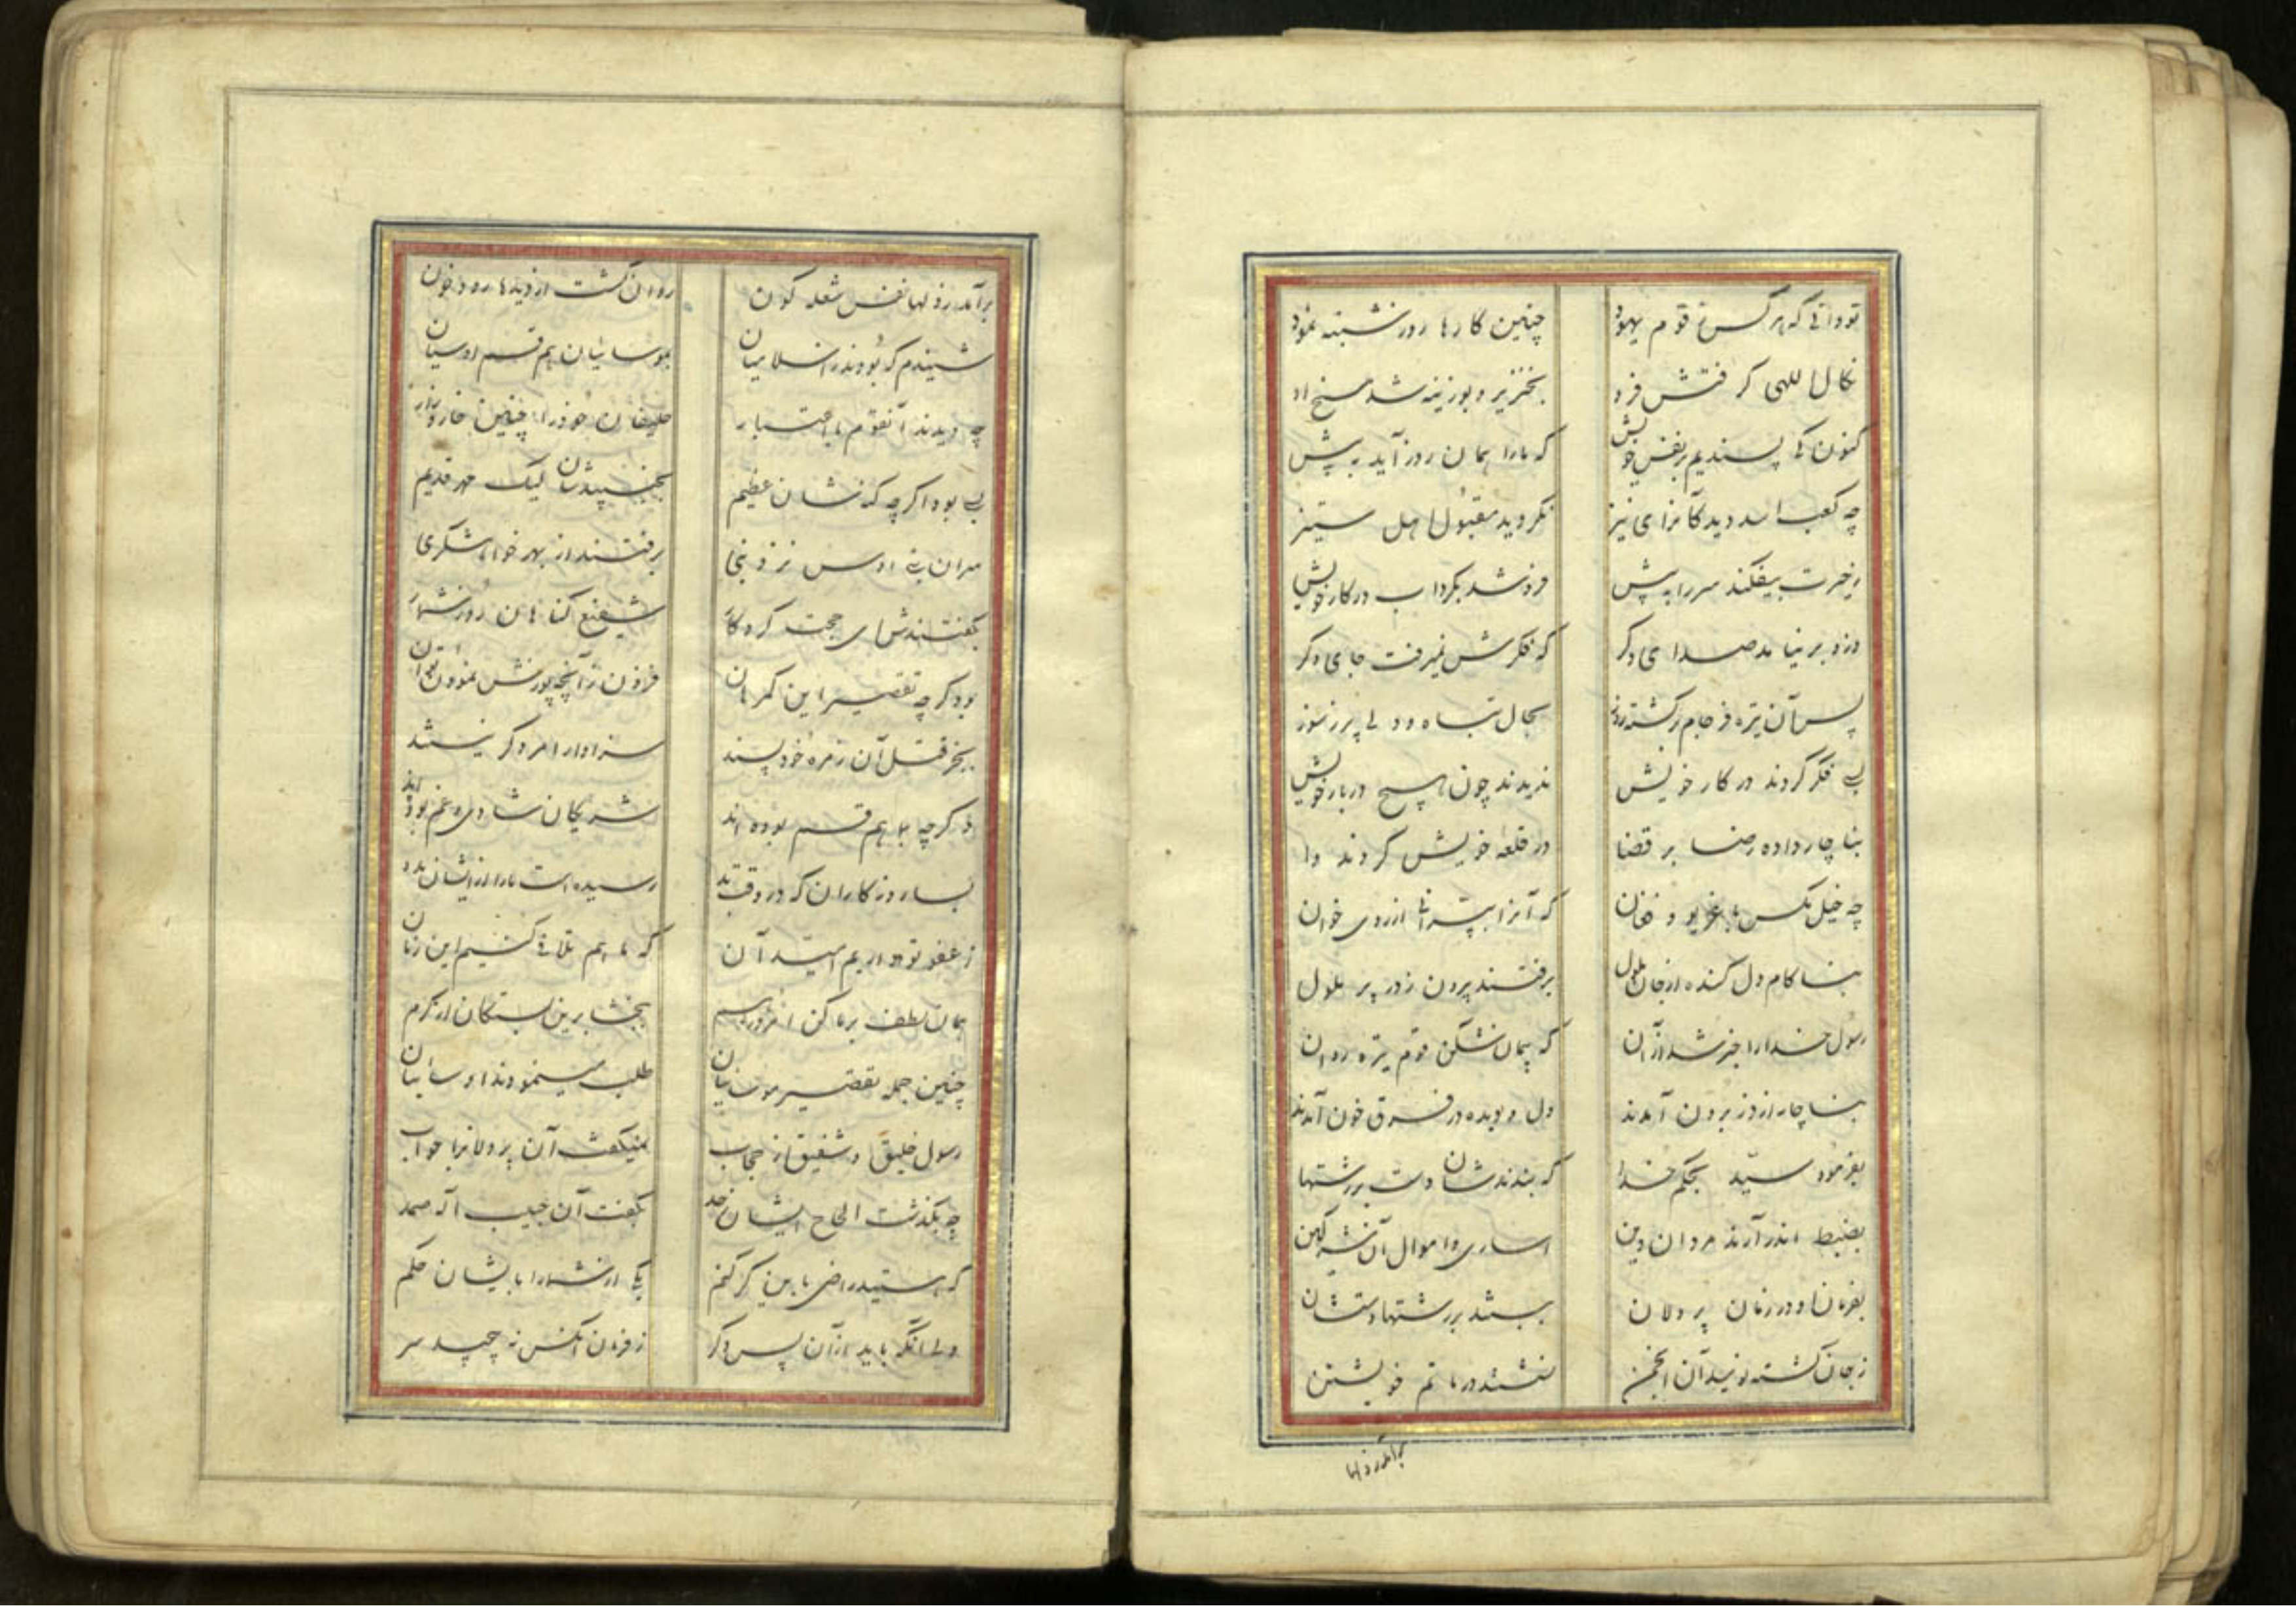 تو دانی که هر کس ز قوم یهود چنین کارها روز شنبه نمود
نکال الهی گرفتش فرو بخنزیر و بوزینه شد مسخ او
کنون کی پسندیم بر نفس خویش که ما را همان روز آید به پیش
چه کعب اسد دید کان رای نیز نگردید مقبول اهل ستیز
ز حیرت بیفکند سر را به پیش فرو شد بگرداب در کار خویش
وزو بر نیامد صدای دگر که فکرش نمیرفت جای دگر
پس آن تیره فرجام برگشته روز بحال تباه و دلی پر ز سوز
بسی فکر کردند در کار خویش ندیدند چون هیچ در بار خویش
بناچار داده رضا بر قضا در قلعه خویش کردند وا
چه خیل مگس با غریو و فغان که آنرا برانی از روی خوان
بناکام دل کنده از جان ملول برفتند بیرون ز در پر ملول
رسول خدا را خبر شد از آن که پیمان شکن قوم تیره روان
بناچار از دز برون آمدند دل و دیده در غرق خون آمدند
بفرمود سید بحکم خدا که بندند شان دست بر رشتها
بضبط اندر آرند مردان دین اساری و اموال آن کین
بفرمان او در زمان پر دلان ببستند بر رشتها دستشان
ز جان گشته نومید آن انجمن نشستند در ماتم خویشتن
برآمد ز دلها
برآمد ز دلها نفس شعله گون روان گشت از دیدها رود خون
شنیدم که بودند ز اسلامیان بموسائیان هم قسم اوسیان
چه دیدند آنقوم با اعتبار حلیفان خود را چنین خار و زار
بجنبیدشان لیک مهر قدیم
سران بنی اوس نزد نبی برفتند از بهر خواهشگری
بگفتند شای حجت کردگار شفیع گناهان روز شمار
بود گرچه تقصیر این گمرهان فزون زآنچه پوزش نمودن توان
بجز قتل آن زمره خود پسند سزاوار امر دگر نیستند
گرچه با هم قسم بوده اند شریکان شادی و غم بوده اند
بسا روزگاران که در وقت بد رسیده است ما را از ایشان مدد
ز عفو تو داریم امید آن که ما هم تلافی کنیم این زمان
همان لطف بر ما کن امروز ببخشا برین بستگان از کرم
چنین جمله تقصیر موسائیان طلب مینمودند اوسائیان
رسول خلیق و شفیق از حجاب نمیگفت آن پر دلانرا جواب
چه بگذشت الحاح ایشان ز حد بگفت آن حبیب اله صمد
که هستید راضی باین گر کنم یکی از شما را بایشان حکم
ولی آنگه باید از آن پس دگر ز فرمان آنکس نه پیچید سر